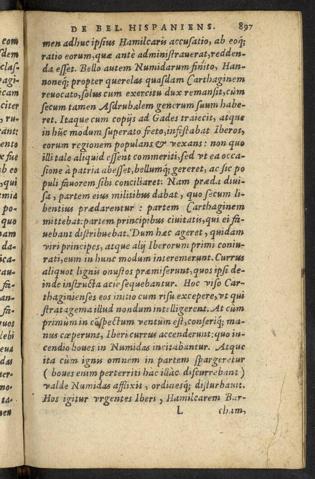 DE BEL. HISPANIENS. 897
men adhuc ipsius Hamilcaris accusatio, ab eoq́;
ratio eorum, quæ antè administrauerat, redden-
da esset. Bello autem Numidarum finito, Han-
noneq́; propter querelas quasdam Carthaginem
reuocato, solus cum exercitu dux remansit, cùm
secum tamen Asdrubalem generum suum habe-
ret. Itaque cum copijs ad Gades traiecit, atque
in hũc modum superato freto, infestabat Iberos,
eorum regionem populans & vexans: non quo
illi tale aliquid essent commeriti, sed vt ea occa-
sione à patria abesset, bellumq́; gereret, ac sic po
puli fauorem sibi conciliaret: Nam præda diui-
sa, partem eius militibus dabat, quo secum li-
bentius prædarentur: partem Carthaginem
mittebat: partem principibus ciuitatis, qui ei fa-
uebant distribuebat. Dum hæc ageret, quidam
viri principes, atque alij Iberorum primi coniu-
rati, eum in hunc modum interemerunt. Currus
aliquot lignis onustos præmiserunt, quos ipsi de-
inde instructa acie sequebantur. Hoc viso Car-
thaginenses eos initio cum risu excepere, vt qui
stratagema illud nondum intelligerent. At cùm
primùm in cõspectum ventum est, conseriq́; ma-
nus cœperunt, Iberi currus accenderunt: quo in-
cendio boues in Numidas incitabantur. Atque
ita cùm ignis omnem in partem spargeretur
(boues enim perterriti hàc illàc discurrebant)
valde Numidas afflixit, ordinesq́; disturbauit.
Hos igitur vrgentes Iberi, Hamilcarem Bar-
L cham,